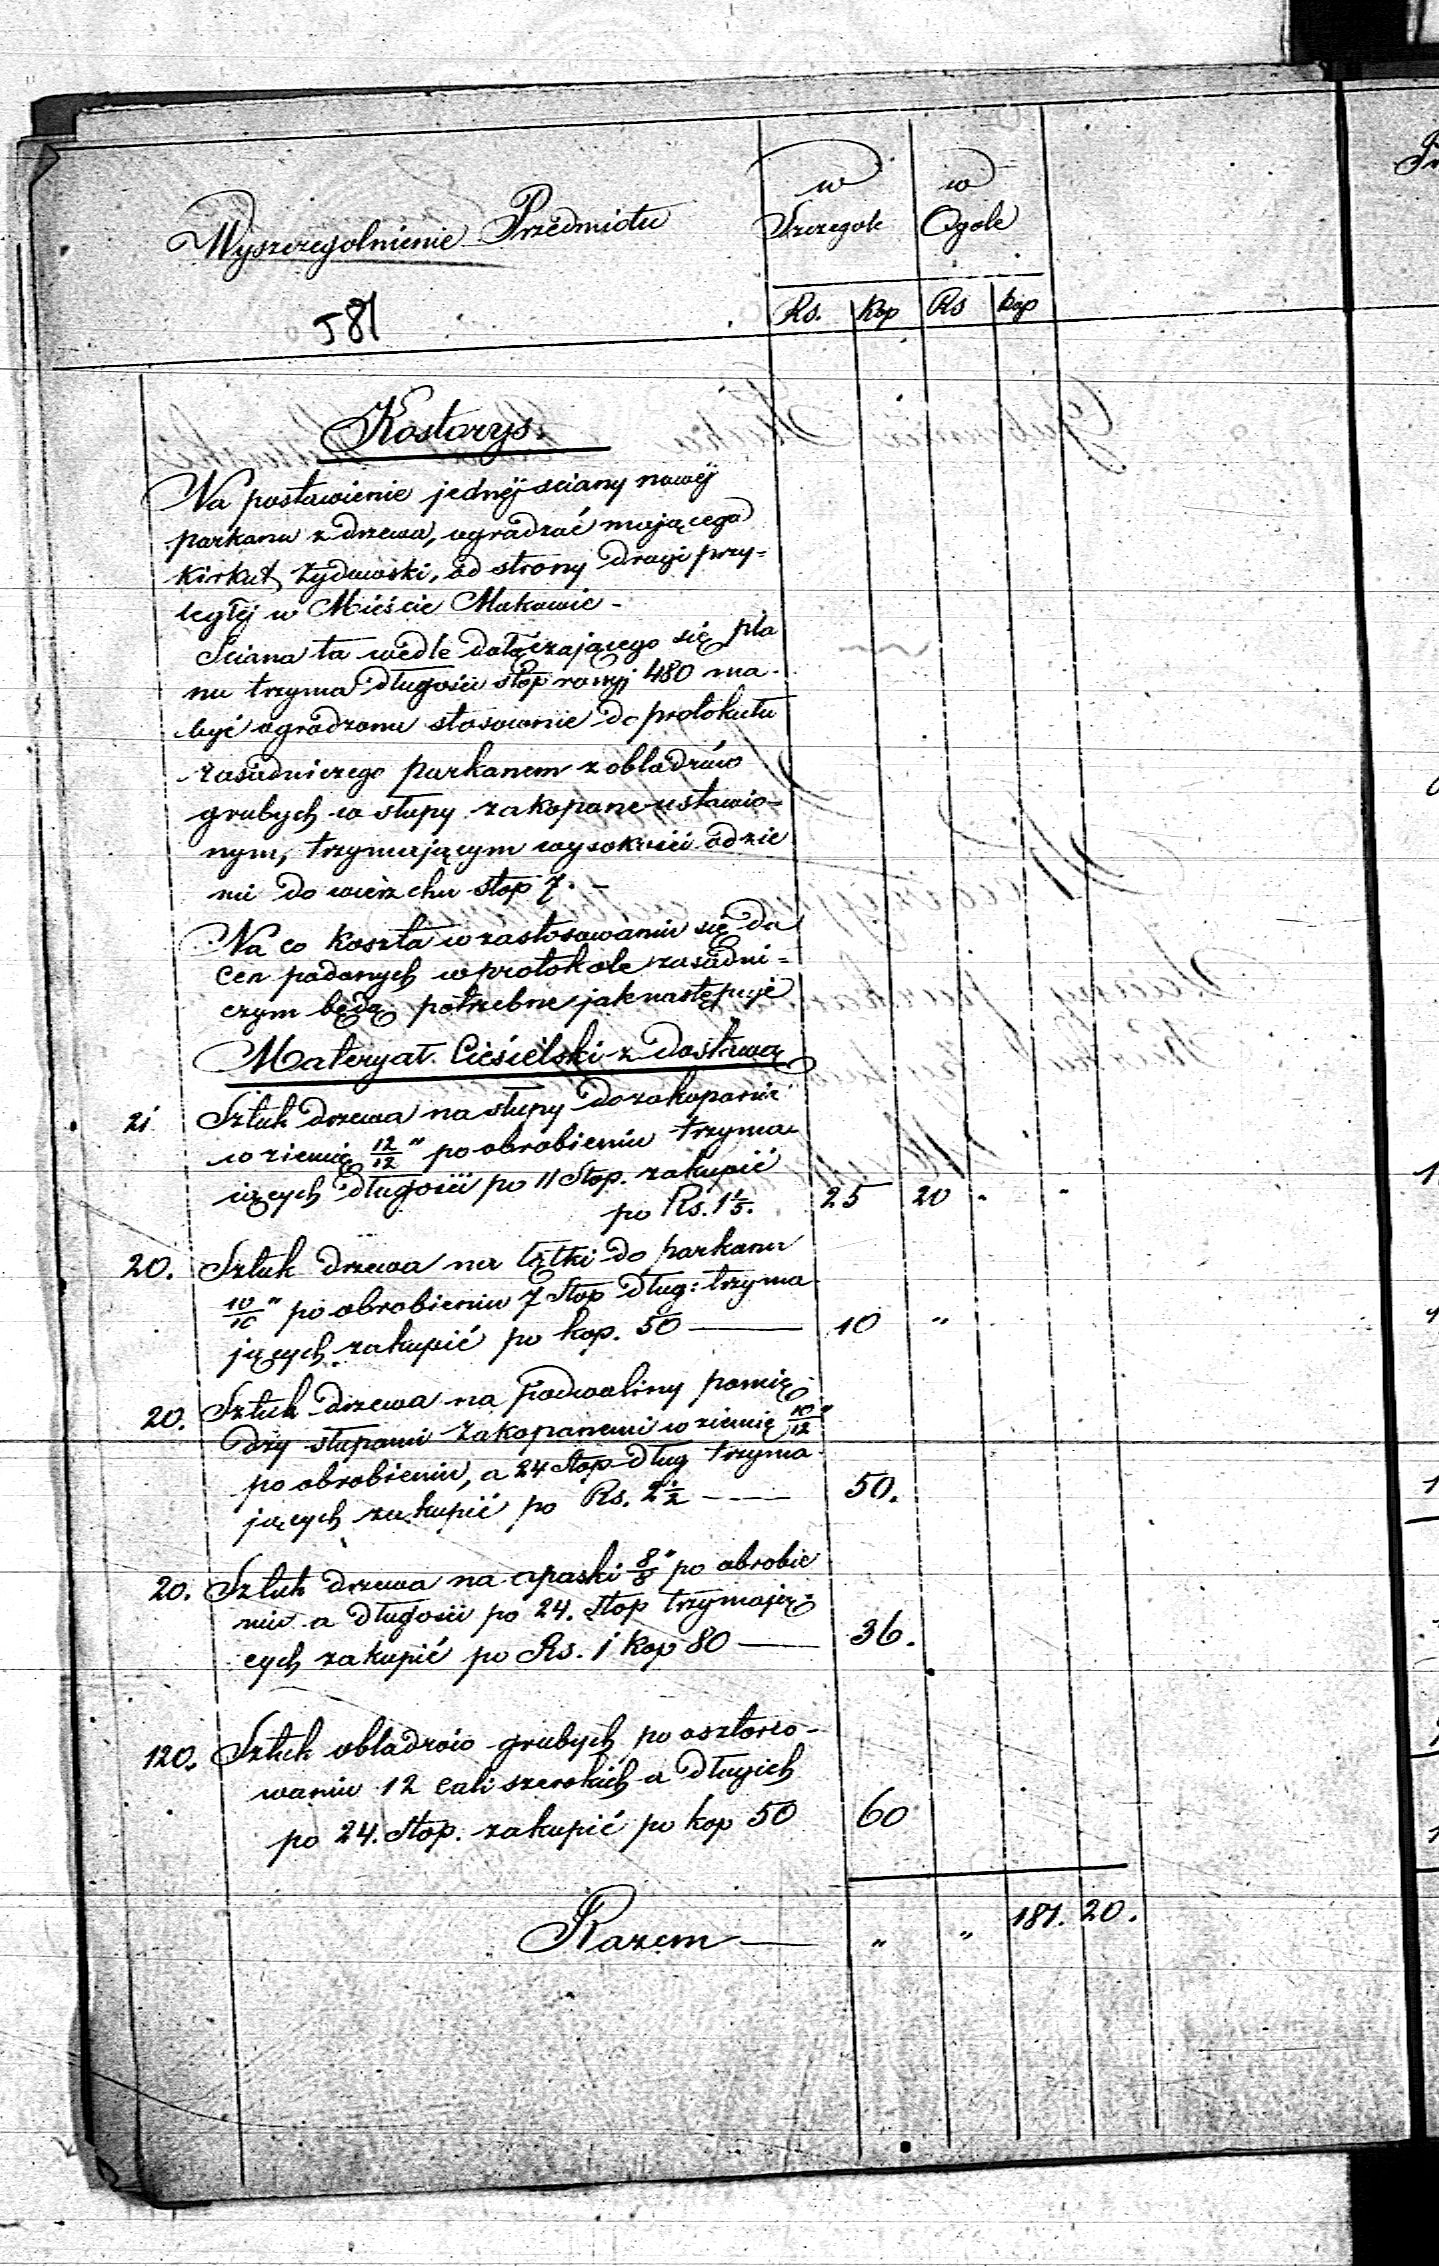 Wyszczególnienie Przedmiotu
w Szczególe
w Ogóle
581
Rs. Kop Rs Kop
Kostorys.
Na postawienie jednéj sciany nowéj
parkanu z drzewa, ogradzać mającego
Kirkut Żydowski, od strony drogi przy-
ległéj w Mieście Makowie -
Sciana ta wedle dołączającego się pla
nu trzyma długości stóp 480 ma
być ogrodzona stosownie do protokułu
zasadniczego parkanem z obladrów
grubych w słupy zakopane ustawio-
nym, trzymającym wysokości od zie
mi do wierzchu stop 7. -
Na co koszta w zastosowaniu się do
cen podanych w protokole zasadni-
czym będą potrzebne jak następuje
Materyał Ciesielski z dostawą
21 Sztuk drzewa na słupy do zakopania
w ziemię 12/12" po obrobieniu trzyma
iących długości po 11 Stop. zakupić
po Rs. 1 1/5. 25 20 " "
20. Sztuk drzewa na łątki do parkanu
10/10" po obrobieniu 7 Stop dług: trzyma
jących zakupić po kop. 50 — 10 "
20. Sztuk drzewa na podwaliny pomię
dzy słupami zakopanemi w ziemię 10/12"
po obrobieniu, a 24 Stop dług trzyma
jących zakupić po Rs. 2 1/2 — 50.
20. Sztuk drzewa na opaski 8/8" po obrobie
niu a długości po 24. Stop trzymają-
cych zakupić po Rs. 1 kop 80 — 36.
120. Sztuk obladrów grubych po osztorco-
waniu 12 cali szerokich a długich
po 24. Stop. zakupić po kop 50 60
Razem — " " 181. 20.